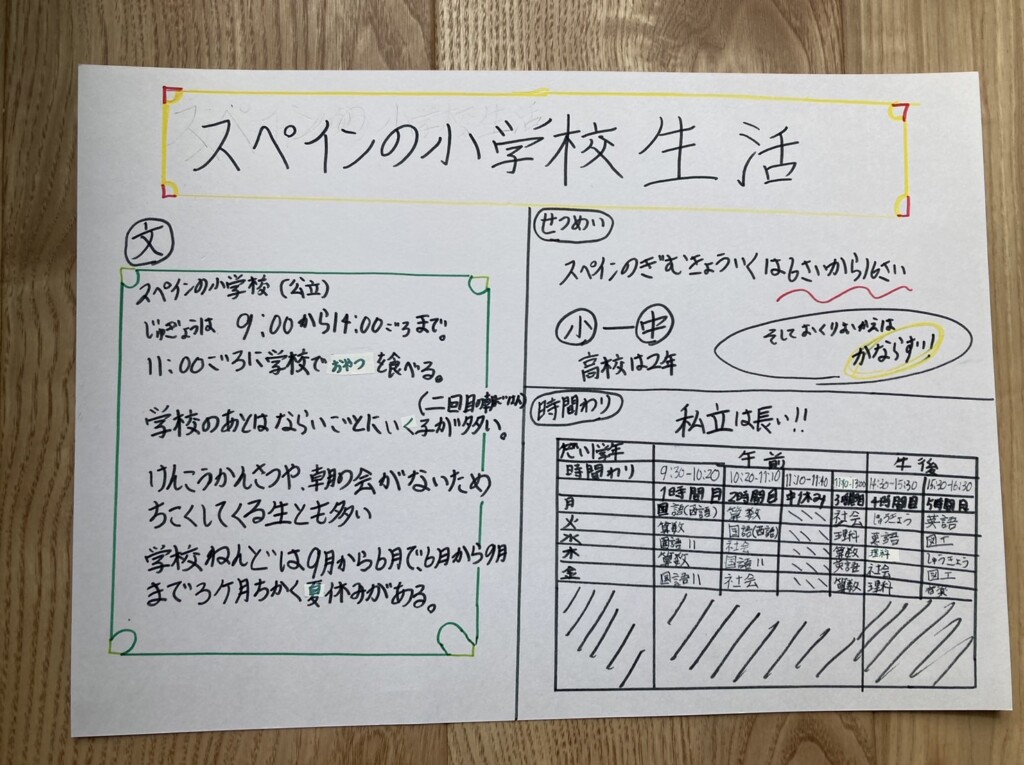 スペインの小学校生活
文
スペインの小学校(公立)
じゅぎょうは 9:00から14:00ごろまで。
11:00ごろに学校でおやつを食べる。
(二回目の朝ごはん)
学校のあとはならいごとにいく子が多い。
けんこうかんさつや、朝の会がないため
ちこくしてくる生とも多い
学校ねんどは9月から6月で、6月から9月
まで3ケ月ちかく夏休みがある。
せつめい
スペインのぎむきょういくは6さいから16さい
小ー中
高校は2年
そして
かならず!!
時間わり
私立は長い!!
学年 午前 午後
時間わり 9:30-10:20 10:20-11:10 11:10-11:40 11:40-13:00 14:30-15:30 15:30-16:30
1時間目 2時間目 中休み 3時間目 4時間目 5時間目
月 国語(西語) 算数 社会 しゅうぎょう 英語
火 算数 国語(西語) 理科 英語 図工
水 国語〃 社会 算数 理科 しゅうきょう
木 算数 国語〃 英語 社会 図工
金 国語〃 社会 算数 理科 音楽